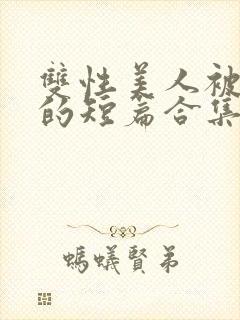 雙性美人被
的短篇合集
螞蟻賢弟